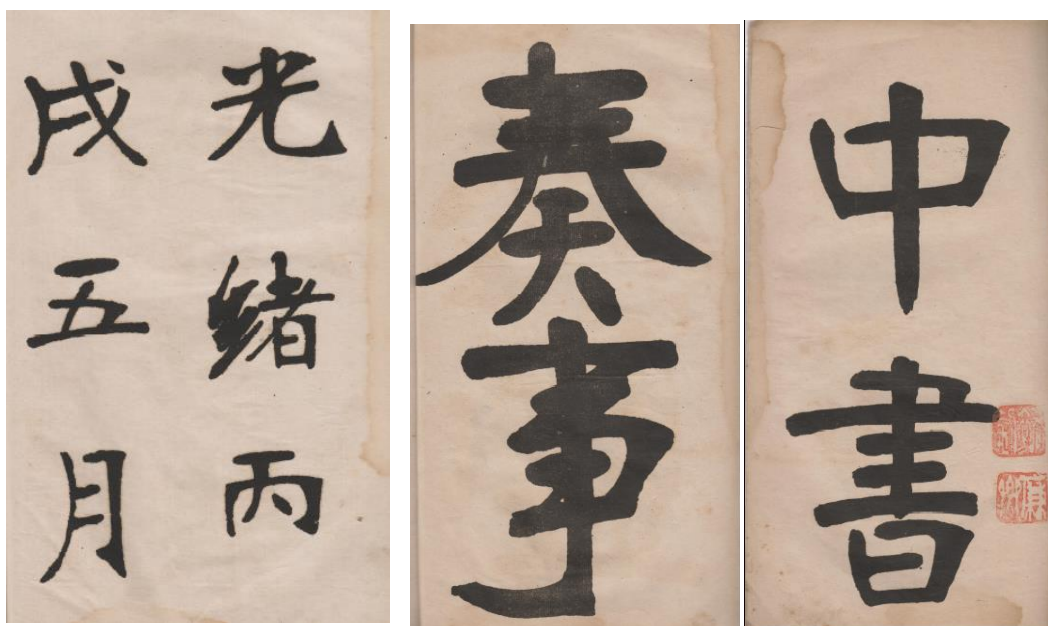 中書
奏事
光緒丙
戌五月